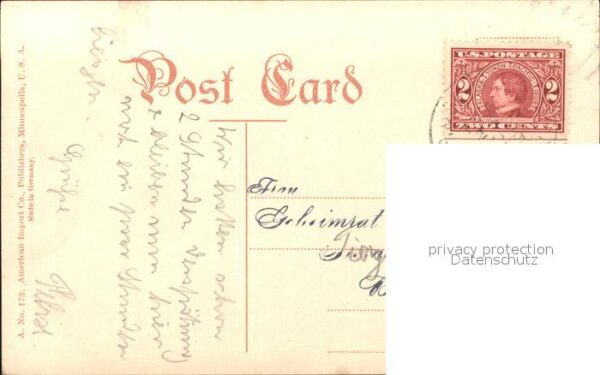 Post Card
U.S. POSTAGE
ALASKA-YUKON-PACIFIC 1909
2 2
TWO CENTS
A. No. 173. American Import Co., Publishers, Minneapolis, U. S. A.
Made in Germany.
Wir hatten schon
2 Stunden Verspätung
bleiben nun hier
noch ein paar Stunden
liegen.
Grüße
Frau
Geheimrat
privacy protection
Datenschutz